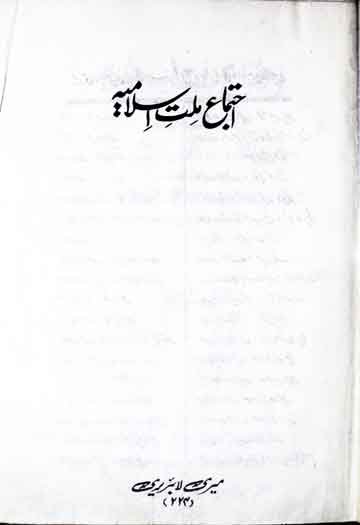 اجتماع ملتِ اسلامیہ
میری لائبریری
(۲۲۳)